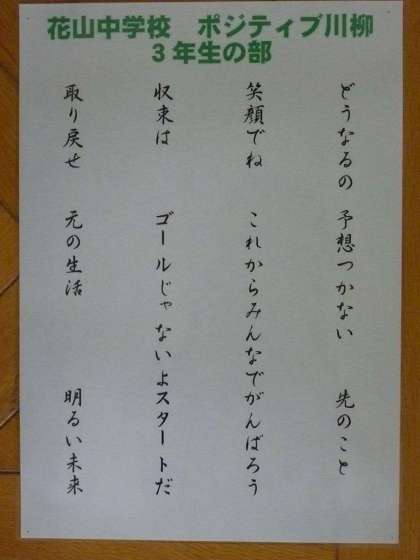 花山中学校　ポジティブ川柳
3年生の部
どうなるの　予想つかない　先のこと
笑顔でね　これからみんなでがんばろう
収束は　ゴールじゃないよスタートだ
取り戻せ　元の生活　明るい未来